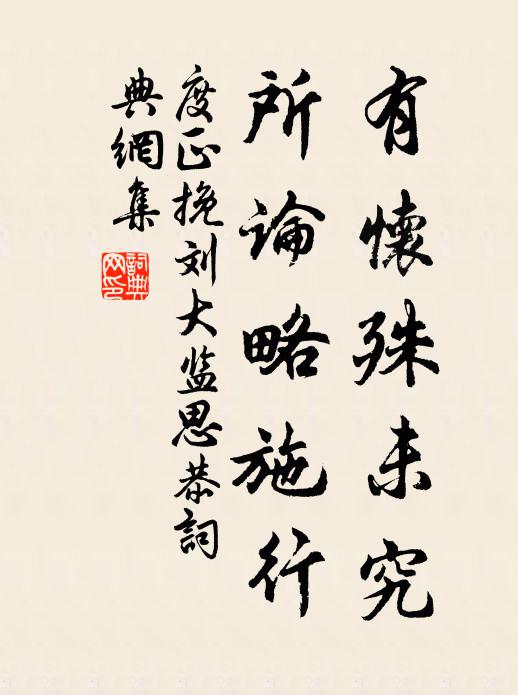 有懷殊未究
所論略施行
度正挽刘大监思恭詞
典網集
詞典網印